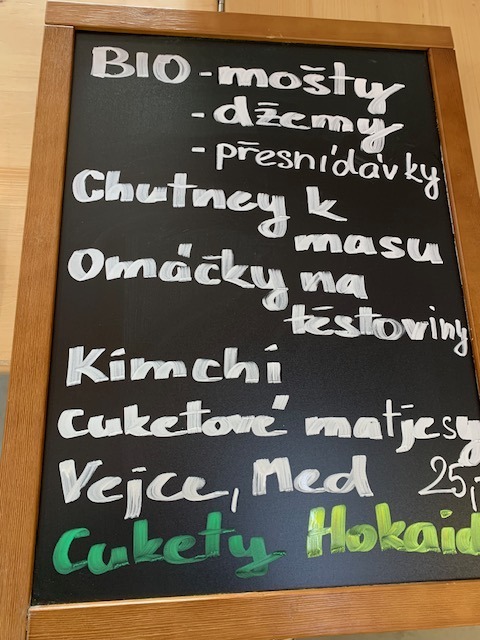 BIO - mošty
- džemy
- přesnídávky
Chutney k
masu
Omáčky na
těstoviny
Kimchi
Cuketové matjesy
Vejce, Med 25,-
Cukety Hokaid